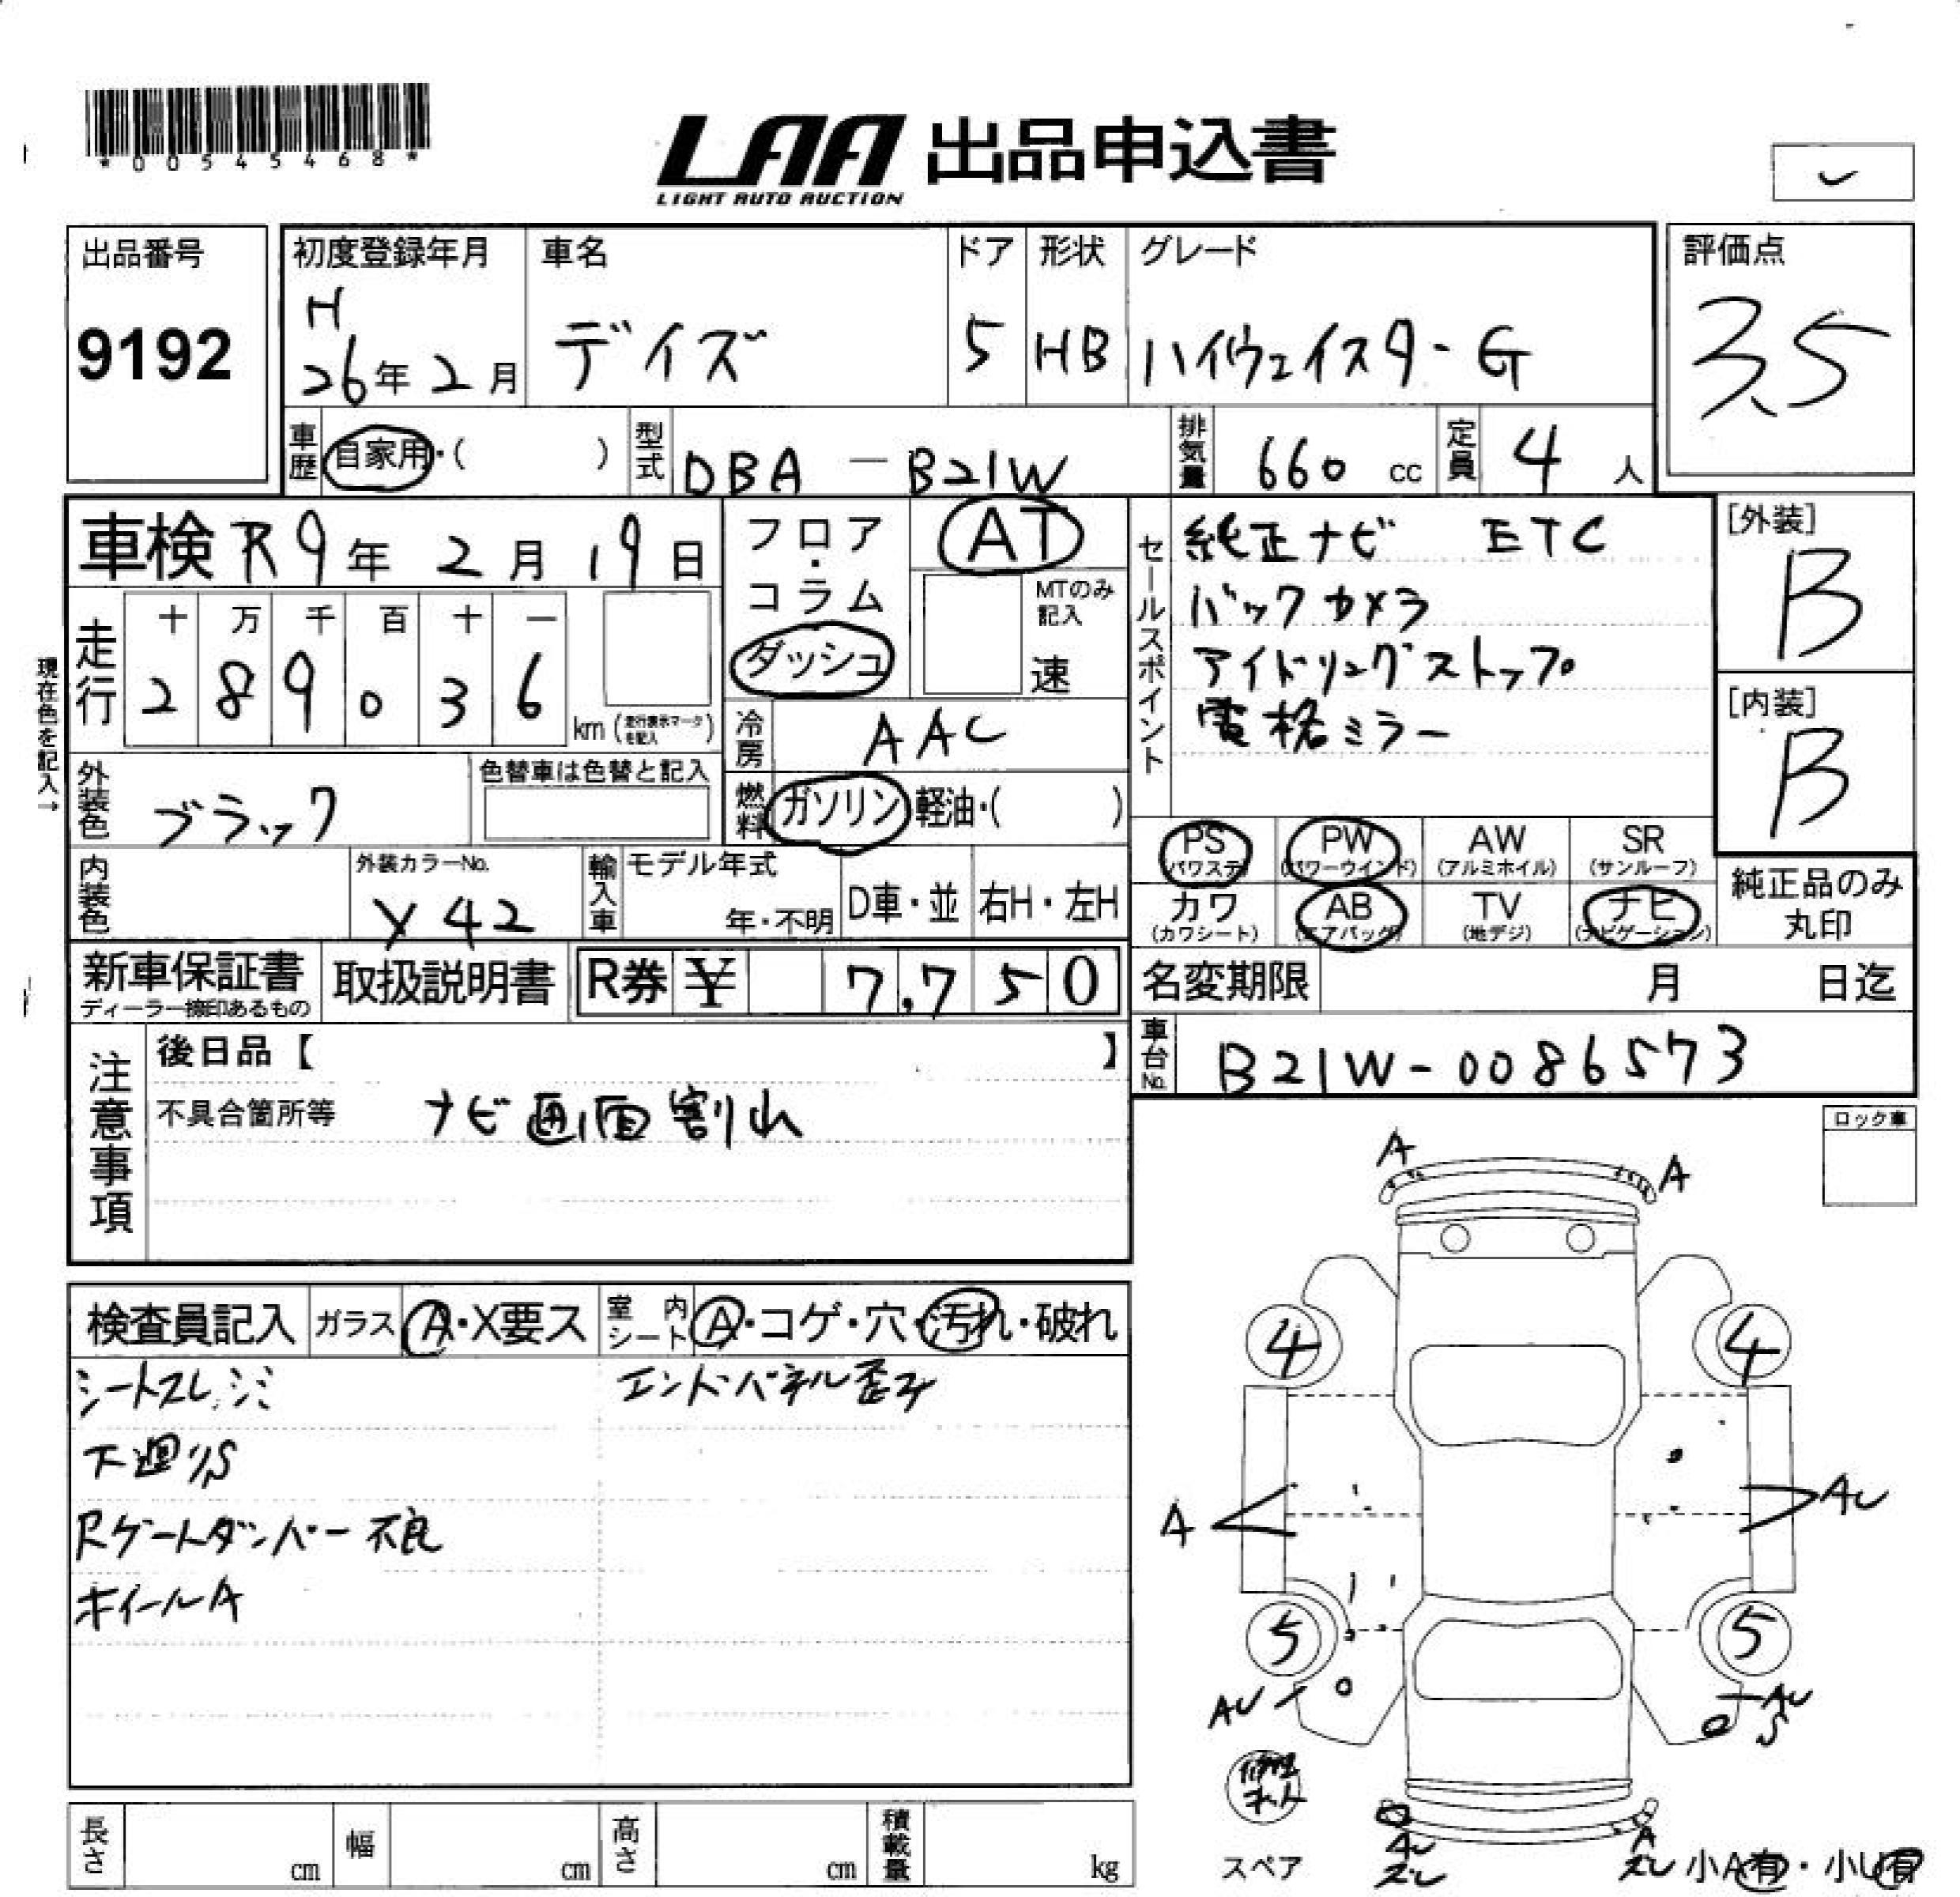 *00545468*
LAA 出品申込書
LIGHT AUTO AUCTION
出品番号
9192
初度登録年月
H
26年 2月
車名
デイズ
ドア
5
形状
HB
グレード
ハイウェイスターG
評価点
3.5
車歴 自家用・( )
型式 DBA-B21W
排気量 660 cc
定員 4 人
車検 R9年 2月 19日
フロア・コラム
ダッシュ
AT
MTのみ記入
速
走行
十 万 千 百 十 一
2 8 9 0 3 6 km (走行表示マークを記入)
現在色を記入→
冷房 AAC
外装色 ブラック
色替車は色替と記入
燃料 ガソリン 軽油・( )
セールスポイント
純正ナビ ETC
バックカメラ
アイドリングストップ
電格ミラー
[外装]
B
[内装]
B
内装色
外装カラーNo.
X42
輸入車
モデル年式
年・不明
D車・並
右H・左H
PS (パワステ)
PW (パワーウインド)
AW (アルミホイル)
SR (サンルーフ)
カワ (カワシート)
AB (エアバッグ)
TV (地デジ)
ナビ (ナビゲーション)
純正品のみ
丸印
新車保証書
ディーラー捺印あるもの
取扱説明書
R券 ¥ 7,750
名変期限 月 日迄
車台No. B21W-0086573
注意事項
後日品【 】
不具合箇所等 ナビ画面割れ
ロック車
検査員記入
ガラス A・X要ス
室内シート A・コゲ・穴・汚れ・破れ
シートスレ シミ
エンドパネル歪み
下廻りS
Rゲートダンパー不良
ホイールA
A A
4 4
A AU
5 5
AU AU
S
スペア
AU
ズレ
A
ズレ
小A有・小U有
長さ cm
幅 cm
高さ cm
積載量 kg